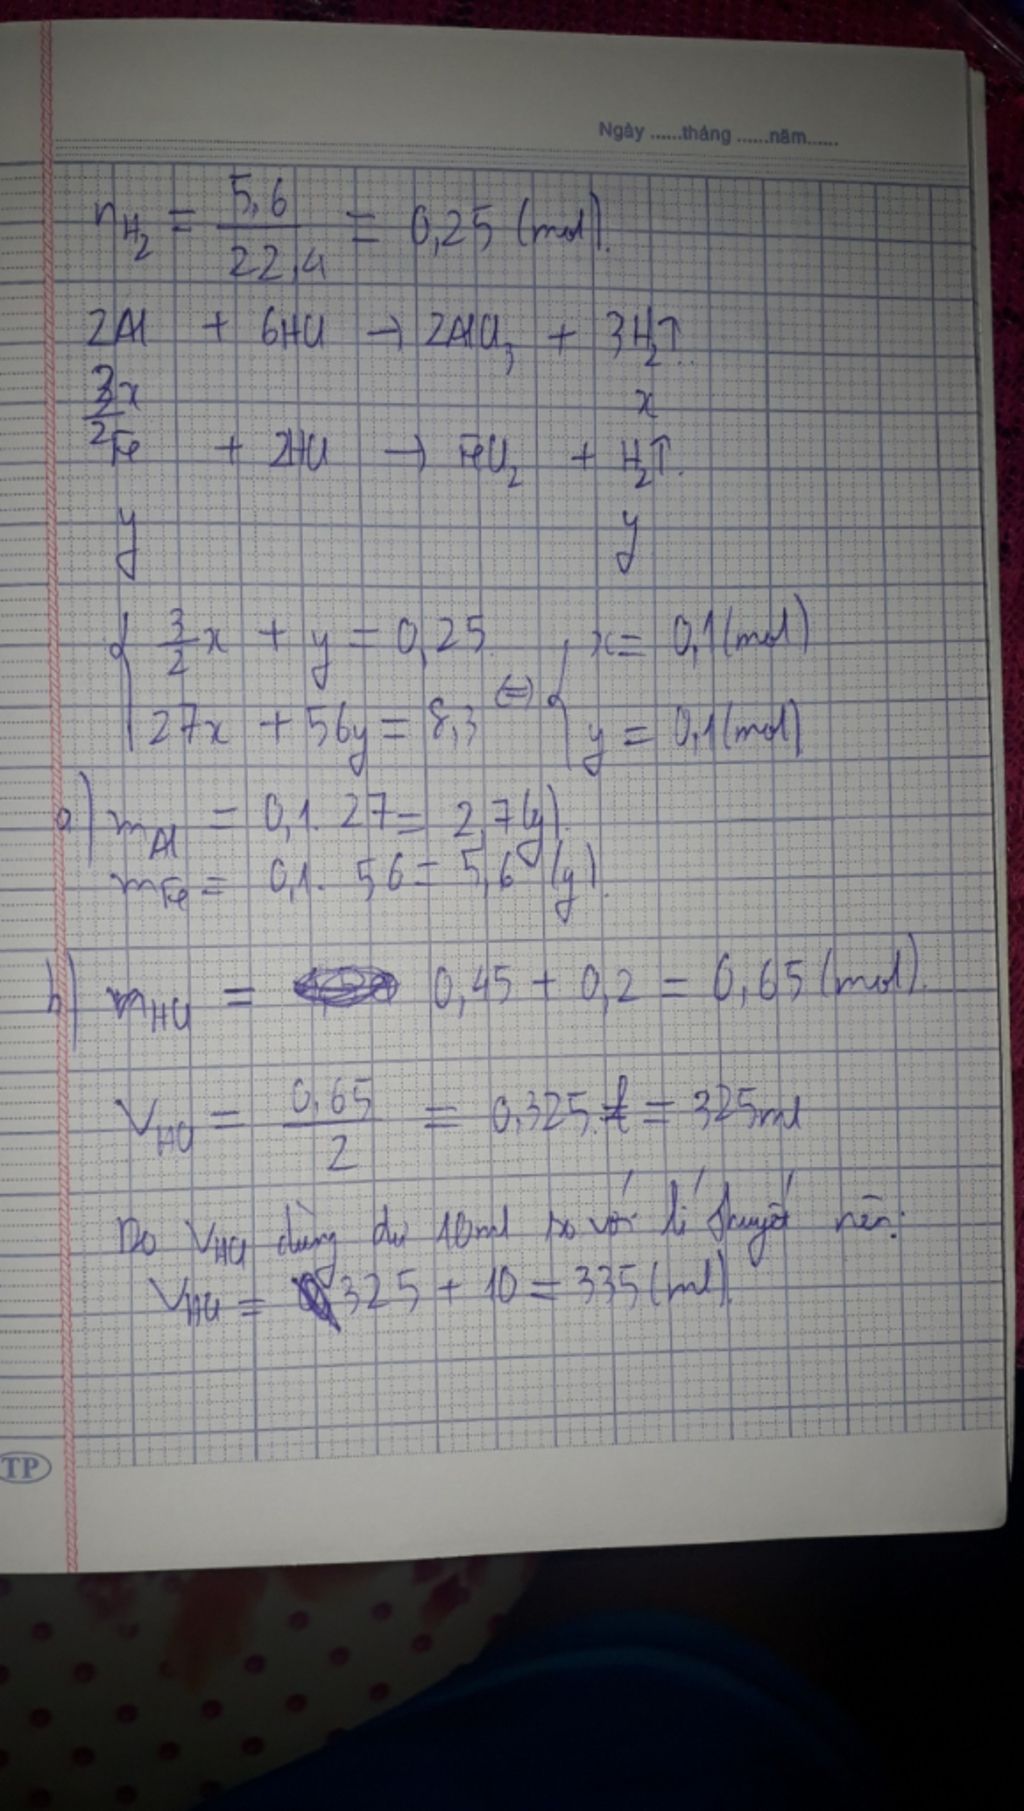 Ngày ......tháng ......năm......
n_H₂ = 5,6/22,4 = 0,25 (mol).
2Al + 6HCl → 2AlCl₃ + 3H₂↑.
3/2x x
Fe + 2HCl → FeCl₂ + H₂↑.
y y
{ 3/2x + y = 0,25 ⇔ { x = 0,1 (mol)
27x + 56y = 8,3 y = 0,1 (mol)
a) m_Al = 0,1. 27 = 2,7 (g).
m_Fe = 0,1. 56 = 5,6 (g).
b) n_HCl = 0,45 + 0,2 = 0,65 (mol).
V_HCl = 0,65/2 = 0,325 l = 325 ml
Do V_HCl dùng dư 10ml so với lí thuyết nên:
V_HCl = 325 + 10 = 335 (ml).
TP